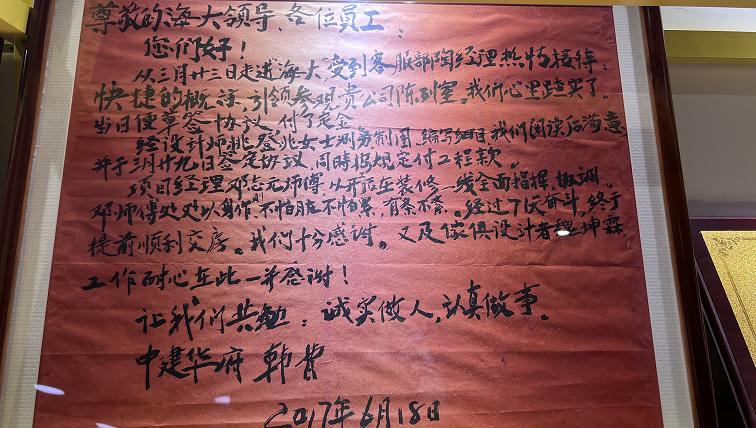 尊敬的海大领导、各位员工：
您们好！
从三月廿三日走进海大，受到客服部陶经理热情接待：
快捷的概述，引领参观贵公司陈列室。我们心里踏实了。
当日便草签协议，付了定金
经设计师姚登兆女士测房制图，编写细目我们阅读后满意
并于三月廿九日签定协议，同时按规定付工程款。
项目经理邓志元师傅从开始在装修一线全面指挥、协调。
邓师傅处处以身作则不怕脏不怕累，有条不紊。经过7天奋斗，终于
提前顺利交房。我们十分感谢。又及傢俱设计者 坤霖
工作耐心在此一并感谢！
让我们共勉：诚实做人，认真做事。
中建华府 韩
2017年6月18日